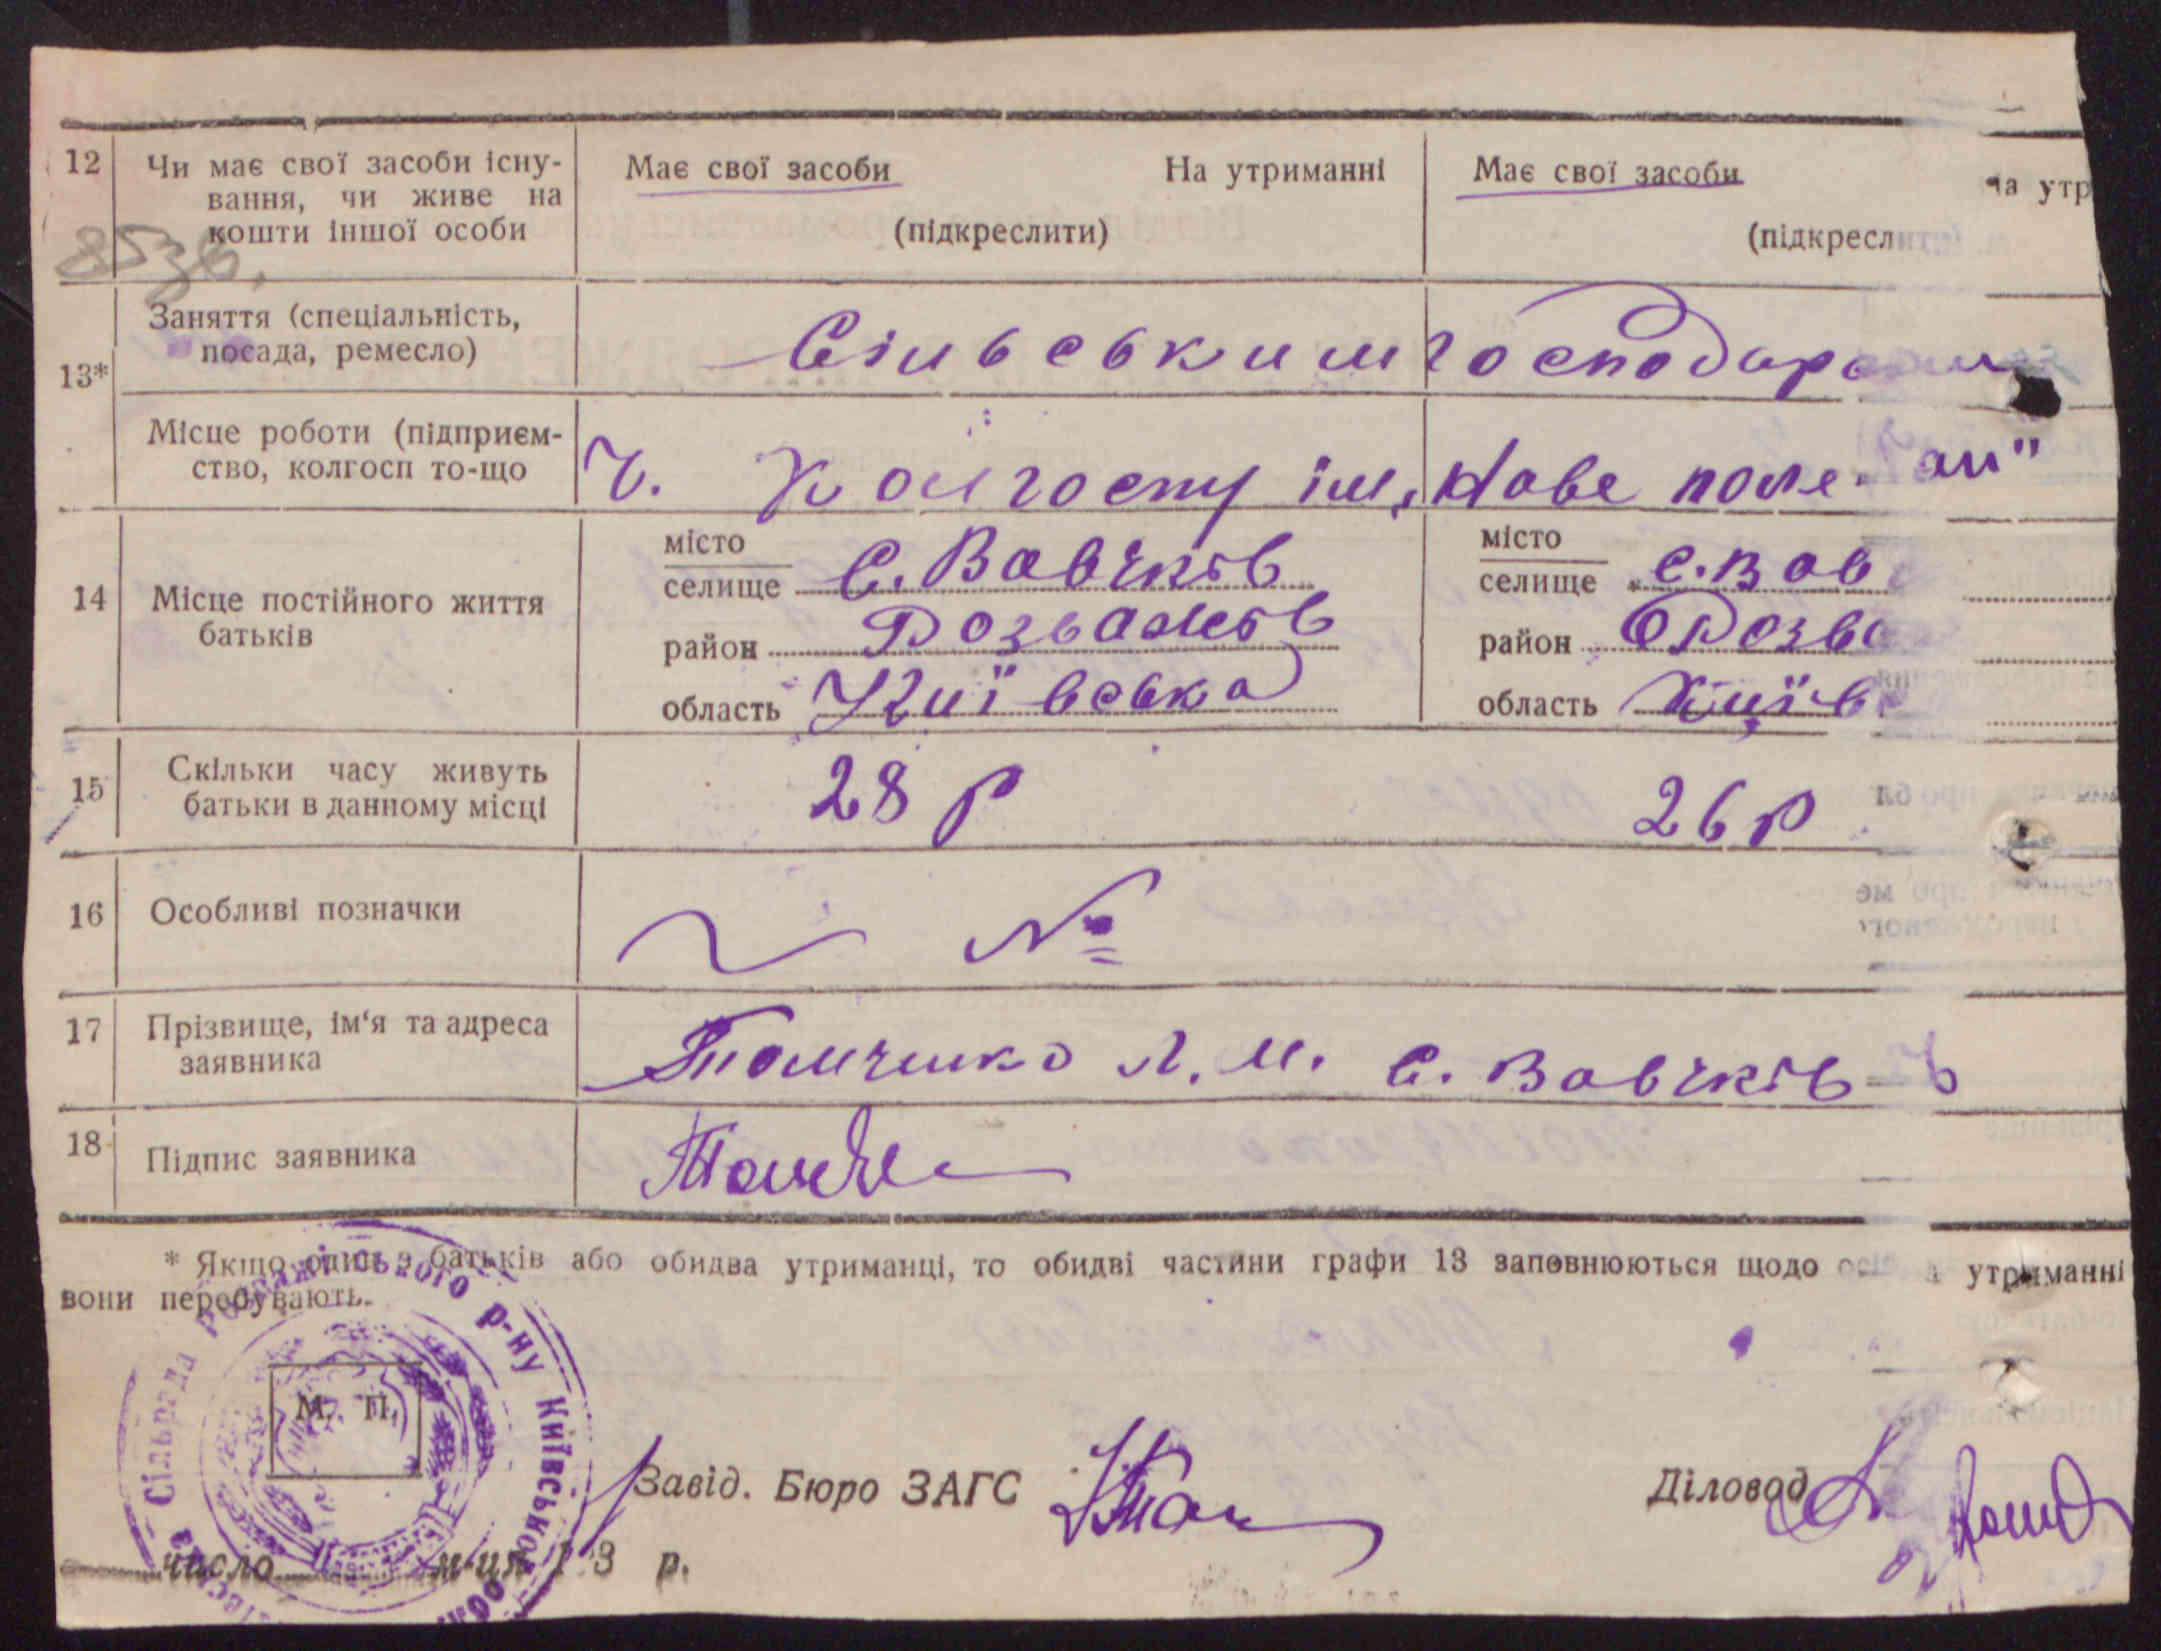 12 Чи має свої засоби існу- Має свої засоби На утриманні Має свої засоби на утр
вання, чи живе на
кошти іншої особи (підкреслити) (підкреслити
853б.
Заняття (спеціальність, Сільським господарем
посада, ремесло)
13*
Місце роботи (підприєм- Ч. Колгоспу ім, Нове поле
ство, колгосп то-що
14 Місце постійного життя
батьків
місто
селище С. Вовчків
район Розважів
область Київська
місто
селище с. Вов
район Розва
область Київ
15 Скільки часу живуть 28 р 26 р
батьки в данному місці
16 Особливі позначки №
17 Прізвище, ім‘я та адреса Томченко Л. М. С. Вовчків
заявника
18 Підпис заявника
* Якщо один з батьків або обидва утриманці, то обидві частини графи 13 заповнюються щодо утриманні
вони перебувають.
Сільрада Розважівського р-ну Київської обл
М. П.
Завід. Бюро ЗАГС Діловод
число м-ця 193 р.